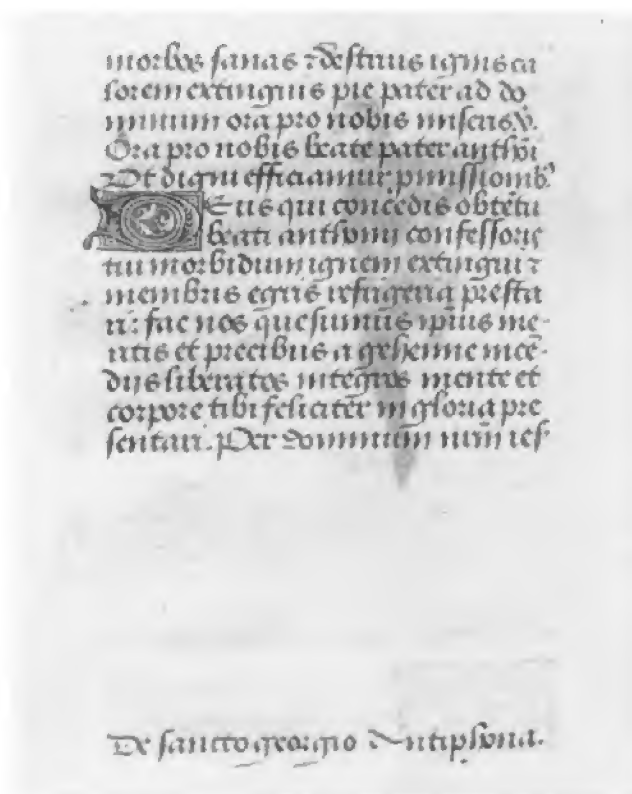 morbos sanas ⁊ destruis ignis ca
lorem extinguis pie pater ad do
minum ora pro nobis miseris. ℣.
Ora pro nobis beate pater anthōi
Ut digni efficiamur pmissionib⁹
Deus qui concedis obtētu
beati anthonii confessoris
tui morbidum ignem extingui ⁊
membris egris refrigeria presta
ri: fac nos quesumus ipius me-
ritis et precibus a gehenne incē-
diis liberatos integros mente et
corpore tibi feliciter in gloria pre
sentari. Per dominum nrm ies
De sancto georgio Antiphona.